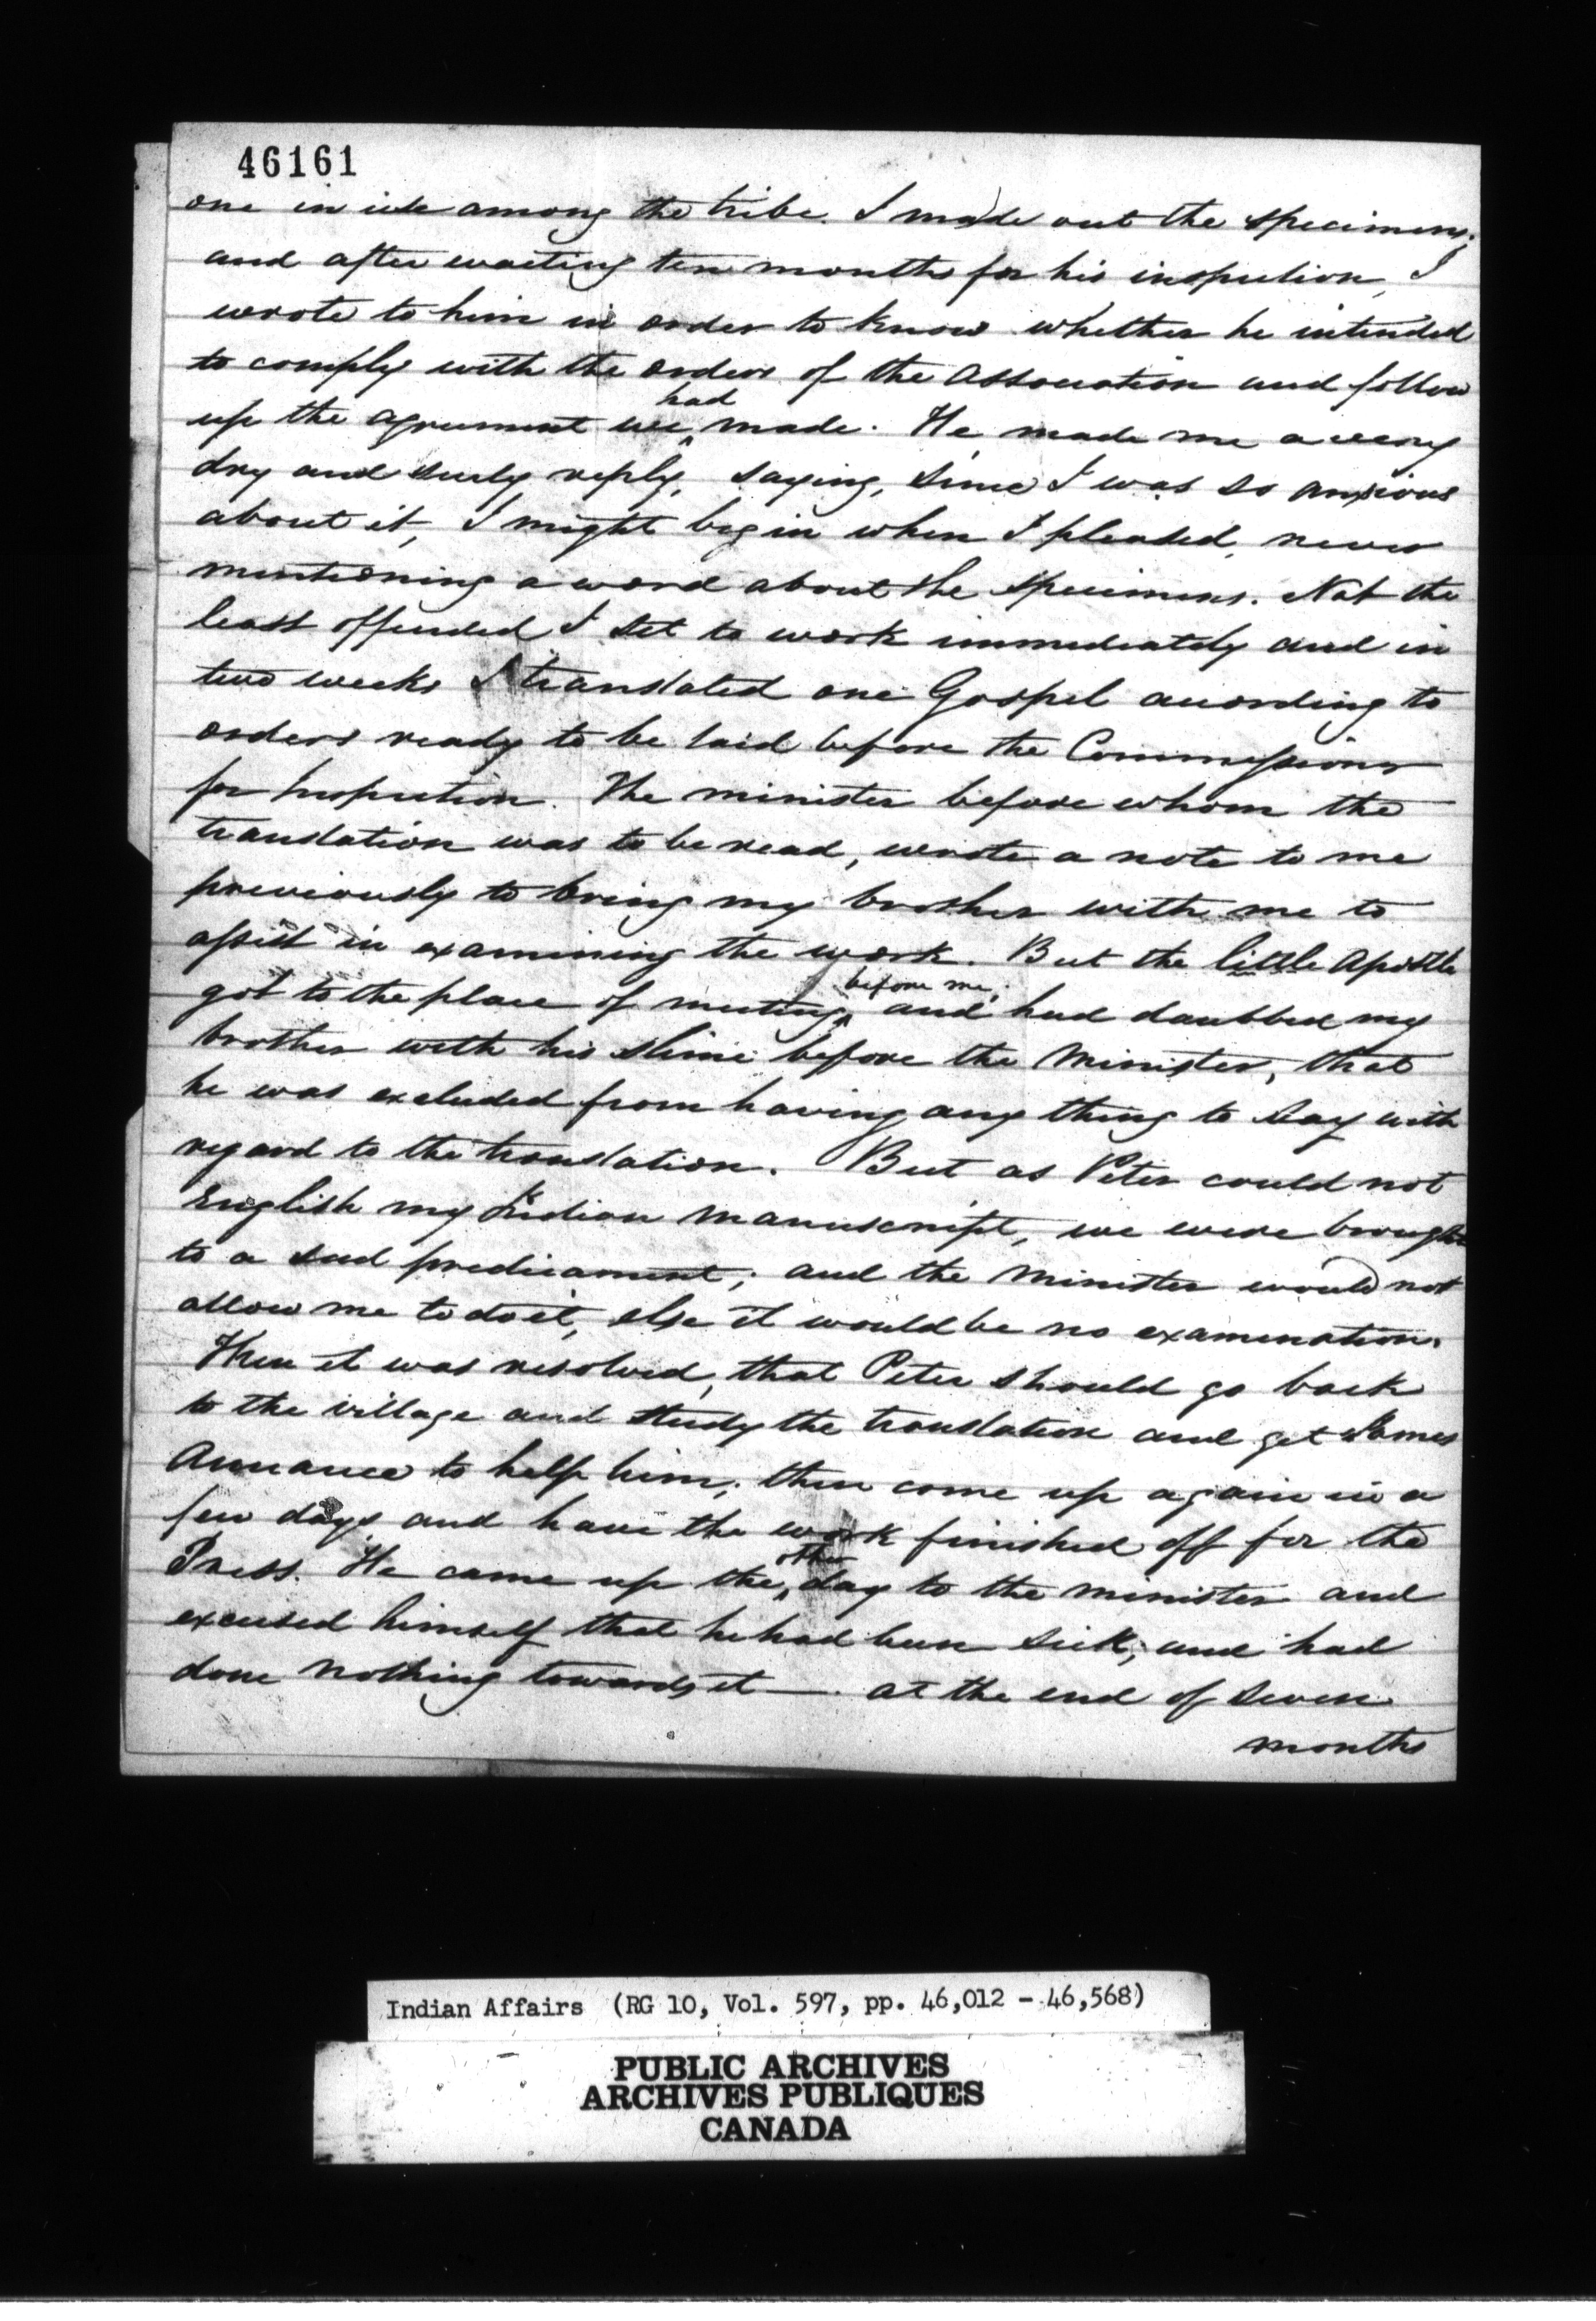 46161
one in use among the tribe. I made out the specimens;
and after waiting ten months for his inspection, I
wrote to him in order to know whether he intended
to comply with the orders of the Association and follow
had
up the agreement we made. He made me a very
dry and surly reply, saying, since I was so anxious
about it, I might begin when I pleased, never
mentioning a word about the specimens. Not the
least offended I set to work immediately and in
two weeks I translated one Gospel according to
orders ready to be laid before the Commissioners
for Inspection. The minister before whom the
translation was to be read, wrote a note to me
previously to bring my brother with me to
assist in examining the work. But the little Apostle
before me;
got to the place of meeting and had daubbed my
brother with his slime before the Minister, that
he was excluded from having any thing to say with
regard to the translation. But as Peter could not
English my Indian manuscript, we were brought
to a sad predicament; and the Minister would not
allow me to do it, else it would be no examination.
Then it was resolved, that Peter should go back
to the village and study the translation and get James
Annance to help him; then come up again in a
few days and have the work finished off for the
other
Press. He came up the day to the minister and
excused himself that he had been sick, and had
done nothing towards it — at the end of seven
months
Indian Affairs (RG 10, Vol. 597, pp. 46,012 - 46,568)
PUBLIC ARCHIVES
ARCHIVES PUBLIQUES
CANADA